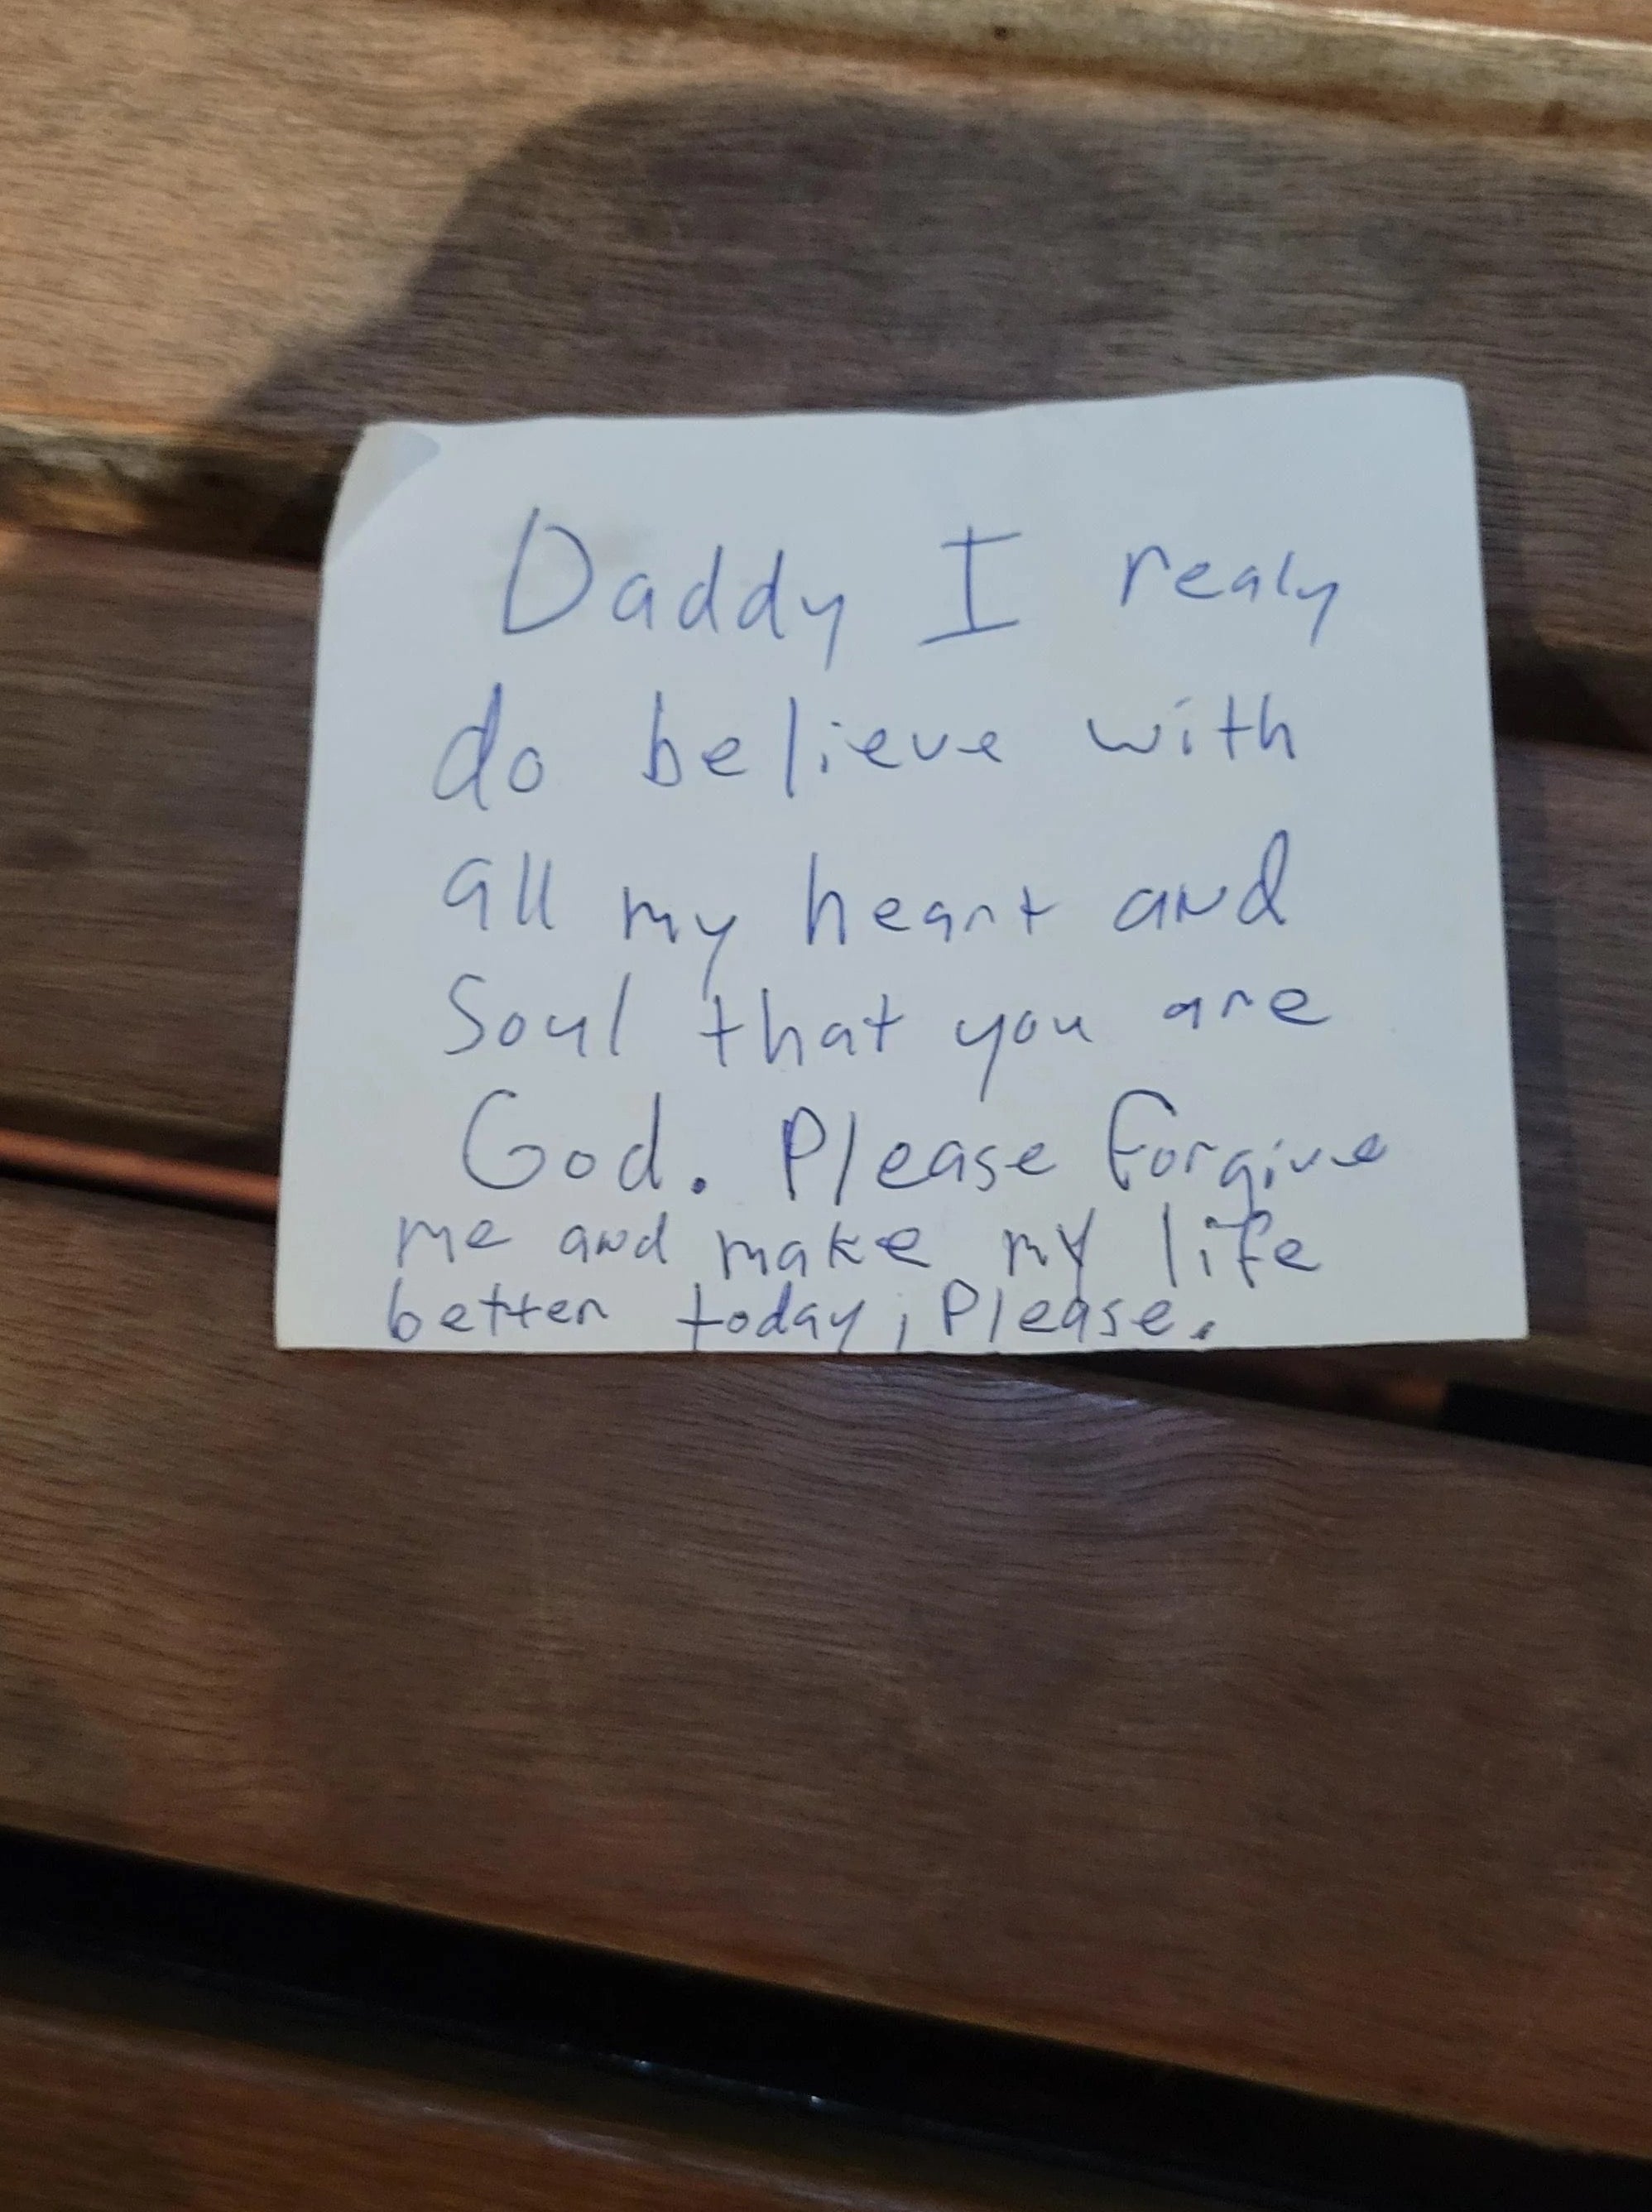 Daddy I realy
do believe with
all my heart and
Soul that you are
God. Please forgive
me and make my life
better today, Please.